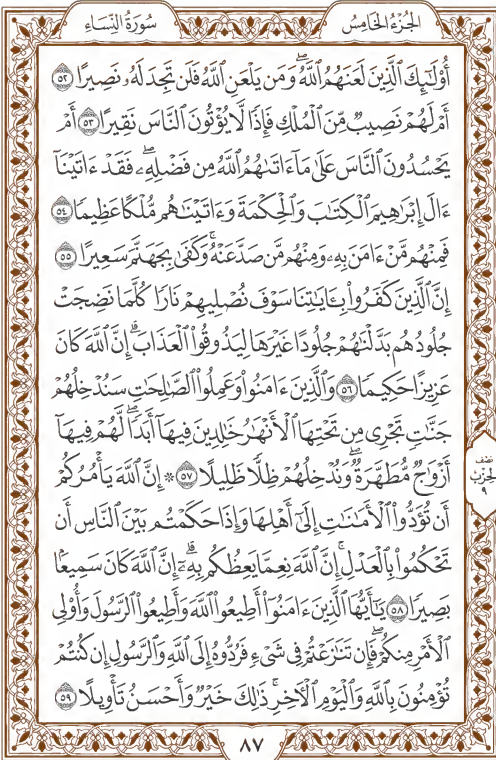 الجُزْءُ الخَامِسُ سُورَةُ النِّسَاءِ
أُوْلَٰٓئِكَ ٱلَّذِينَ لَعَنَهُمُ ٱللَّهُۖ وَمَن يَلْعَنِ ٱللَّهُ فَلَن تَجِدَ لَهُۥ نَصِيرًا ٥٢
أَمْ لَهُمْ نَصِيبٌ مِّنَ ٱلْمُلْكِ فَإِذًا لَّا يُؤْتُونَ ٱلنَّاسَ نَقِيرًا ٥٣ أَمْ
يَحْسُدُونَ ٱلنَّاسَ عَلَىٰ مَآ ءَاتَىٰهُمُ ٱللَّهُ مِن فَضْلِهِۦۖ فَقَدْ ءَاتَيْنَآ
ءَالَ إِبْرَٰهِيمَ ٱلْكِتَٰبَ وَٱلْحِكْمَةَ وَءَاتَيْنَٰهُم مُّلْكًا عَظِيمًا ٥٤
فَمِنْهُم مَّنْ ءَامَنَ بِهِۦ وَمِنْهُم مَّن صَدَّ عَنْهُۚ وَكَفَىٰ بِجَهَنَّمَ سَعِيرًا ٥٥
إِنَّ ٱلَّذِينَ كَفَرُواْ بِـَٔايَٰتِنَا سَوْفَ نُصْلِيهِمْ نَارًا كُلَّمَا نَضِجَتْ
جُلُودُهُم بَدَّلْنَٰهُمْ جُلُودًا غَيْرَهَا لِيَذُوقُواْ ٱلْعَذَابَۗ إِنَّ ٱللَّهَ كَانَ
عَزِيزًا حَكِيمًا ٥٦ وَٱلَّذِينَ ءَامَنُواْ وَعَمِلُواْ ٱلصَّٰلِحَٰتِ سَنُدْخِلُهُمْ
جَنَّٰتٍ تَجْرِى مِن تَحْتِهَا ٱلْأَنْهَٰرُ خَٰلِدِينَ فِيهَآ أَبَدًاۖ لَّهُمْ فِيهَآ
أَزْوَٰجٌ مُّطَهَّرَةٌۖ وَنُدْخِلُهُمْ ظِلًّا ظَلِيلًا ٥٧ ۞ إِنَّ ٱللَّهَ يَأْمُرُكُمْ
أَن تُؤَدُّواْ ٱلْأَمَٰنَٰتِ إِلَىٰٓ أَهْلِهَا وَإِذَا حَكَمْتُم بَيْنَ ٱلنَّاسِ أَن
تَحْكُمُواْ بِٱلْعَدْلِۚ إِنَّ ٱللَّهَ نِعِمَّا يَعِظُكُم بِهِۦٓۗ إِنَّ ٱللَّهَ كَانَ سَمِيعًۢا
بَصِيرًا ٥٨ يَٰٓأَيُّهَا ٱلَّذِينَ ءَامَنُوٓاْ أَطِيعُواْ ٱللَّهَ وَأَطِيعُواْ ٱلرَّسُولَ وَأُوْلِى
ٱلْأَمْرِ مِنكُمْۖ فَإِن تَنَٰزَعْتُمْ فِى شَىْءٍ فَرُدُّوهُ إِلَى ٱللَّهِ وَٱلرَّسُولِ إِن كُنتُمْ
تُؤْمِنُونَ بِٱللَّهِ وَٱلْيَوْمِ ٱلْأَخِرِۚ ذَٰلِكَ خَيْرٌ وَأَحْسَنُ تَأْوِيلًا ٥٩
نصف
الحزب
٩
٨٧